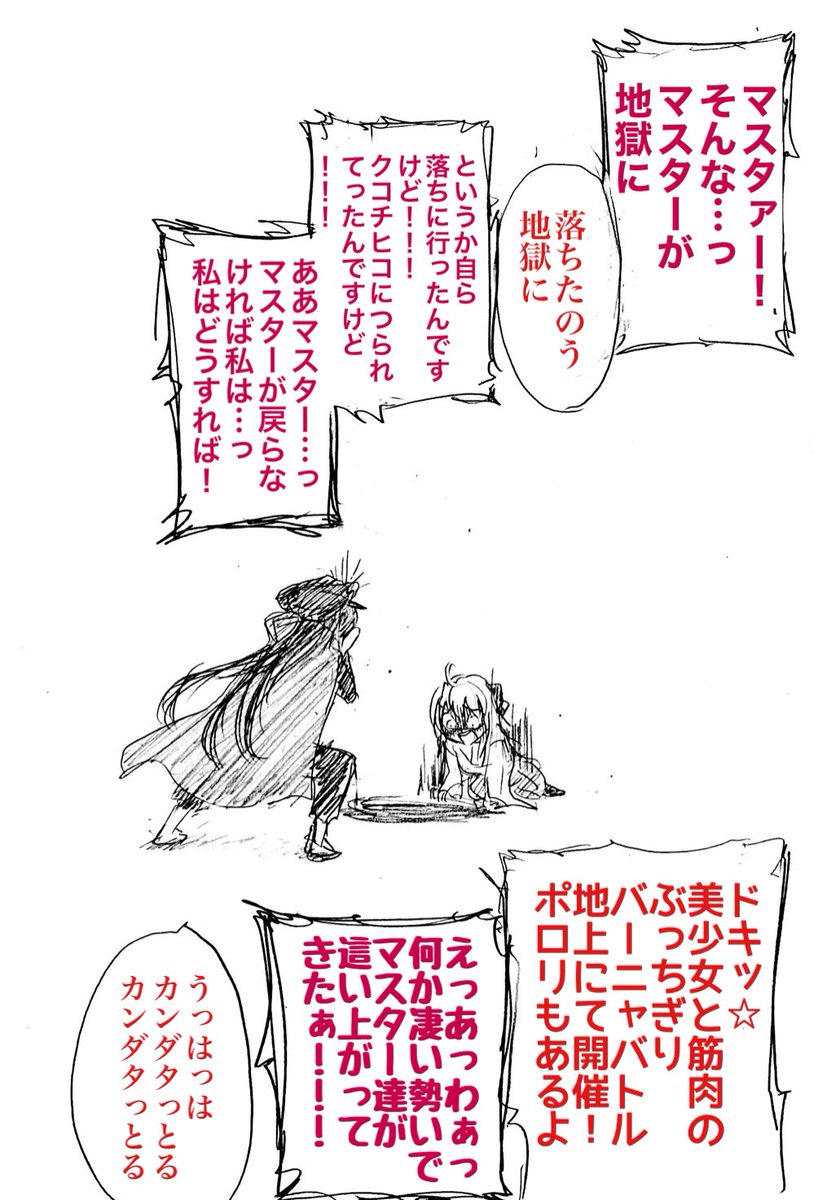 マスタァー！
そんな…っ
マスターが
地獄に
落ちたのう
地獄に
というか自ら
落ちに行ったんです
けど！！！
クコチヒコにつられ
てったんですけど
！！！
ああマスター…っ
マスターが戻らな
ければ私は…っ
私はどうすれば！
ドキッ☆
美少女と筋肉の
ぶっちぎり
バーニャバトル
地上にて開催！
ポロリもあるよ
えっあっわぁっ
何か凄い勢いで
マスター達が
這い上がって
きたぁ！！！
うっはっは
カンダタっとる
カンダタっとる